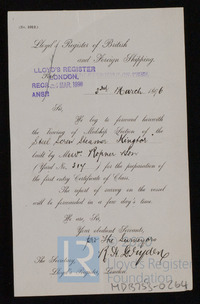 Lloyd's Register of British
and Foreign Shipping,
LLOYD'S REGISTER
LONDON,
RECD MAR. 1896
ANSD
March 1896
Sir,
We beg to forward herewith
the tracing of Midship Section of the
Steel Screw Steamer
built by Messrs Ropner & Son
(Yard No. 324) for the preparation of
the first entry Certificate of Class.
The report of survey on the vessel
will be forwarded in a few day's time.
We are, Sir,
Your obedient Servants,
The Surveyors
The Secretary,
Lloyd's Register, London
Lloyd's Register
Foundation
MDB135-0264